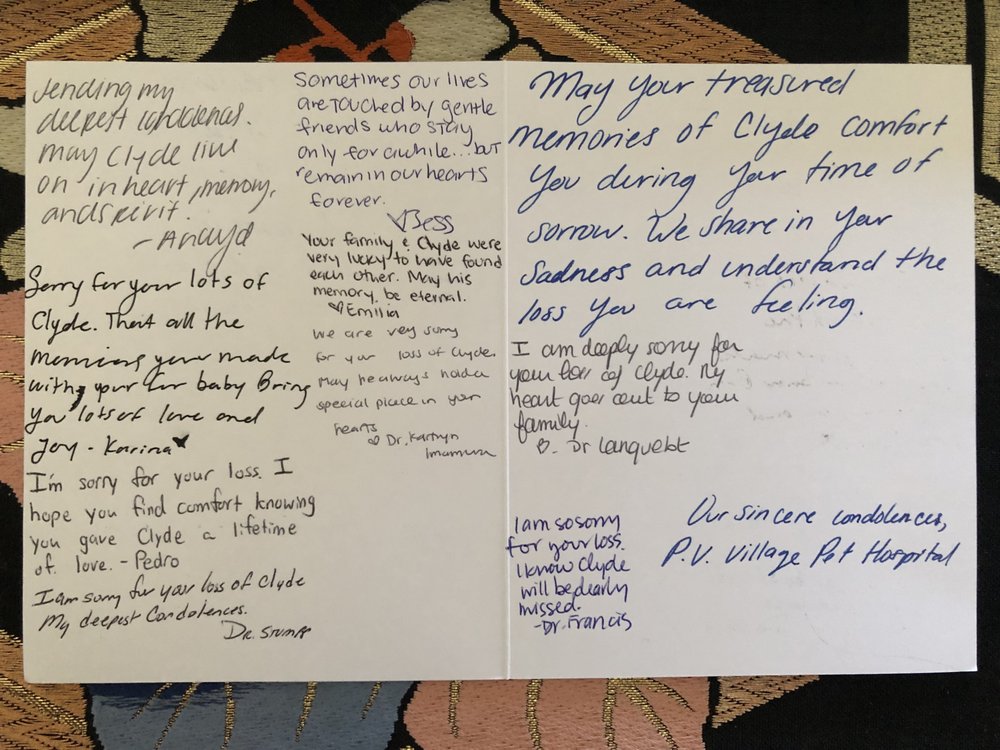 Sending my
deepest condolences.
May Clyde live
on in heart, memory,
and spirit.
- Anayd
Sorry for your lots of
Clyde. That all the
memories your made
with your fur baby Bring
you lots of love and
Joy - Karina
I'm sorry for your loss. I
hope you find comfort knowing
you gave Clyde a lifetime
of love. - Pedro
I am sorry for your loss of Clyde
My deepest Condolences.
Dr. Stump
Sometimes our lives
are touched by gentle
friends who stay
only for awhile... but
remain in our hearts
forever.
♡Bess
Your family & Clyde were
very lucky to have found
each other. May his
memory be eternal.
♡Emilia
We are very sorry
for your loss of Clyde.
May he always hold a
special place in your
hearts
♡ Dr. Kathryn
Imamura
May your treasured
memories of Clyde comfort
you during your time of
sorrow. We share in your
sadness and understand the
loss you are feeling.
I am deeply sorry for
your loss of Clyde. My
heart goes out to your
family.
Dr Lanquebt
I am so sorry
for your loss.
I know Clyde
will be dearly
missed.
-Dr. Francis
Our sincere condolences,
P.V. Village Pet Hospital